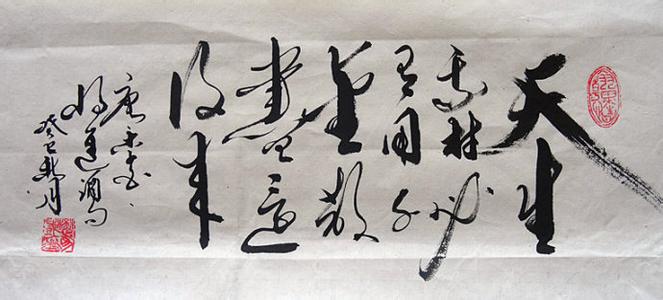 天生
我材必
有用千
金散
盡還
復来
唐李白、
将進酒句
癸巳月